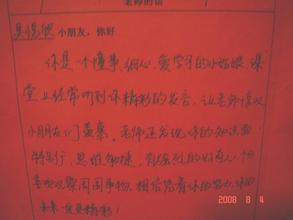 老师的话
小朋友，你好
你是一个懂事、细心、爱学习的小姑娘，课
堂上经常听到你精彩的发言，让老师
小朋友们羡慕。老师还发现你的知识面
特别广，思维敏捷，
观察周围事物，相信凭着你的努力，你的
未来更精彩！
2008 8 4